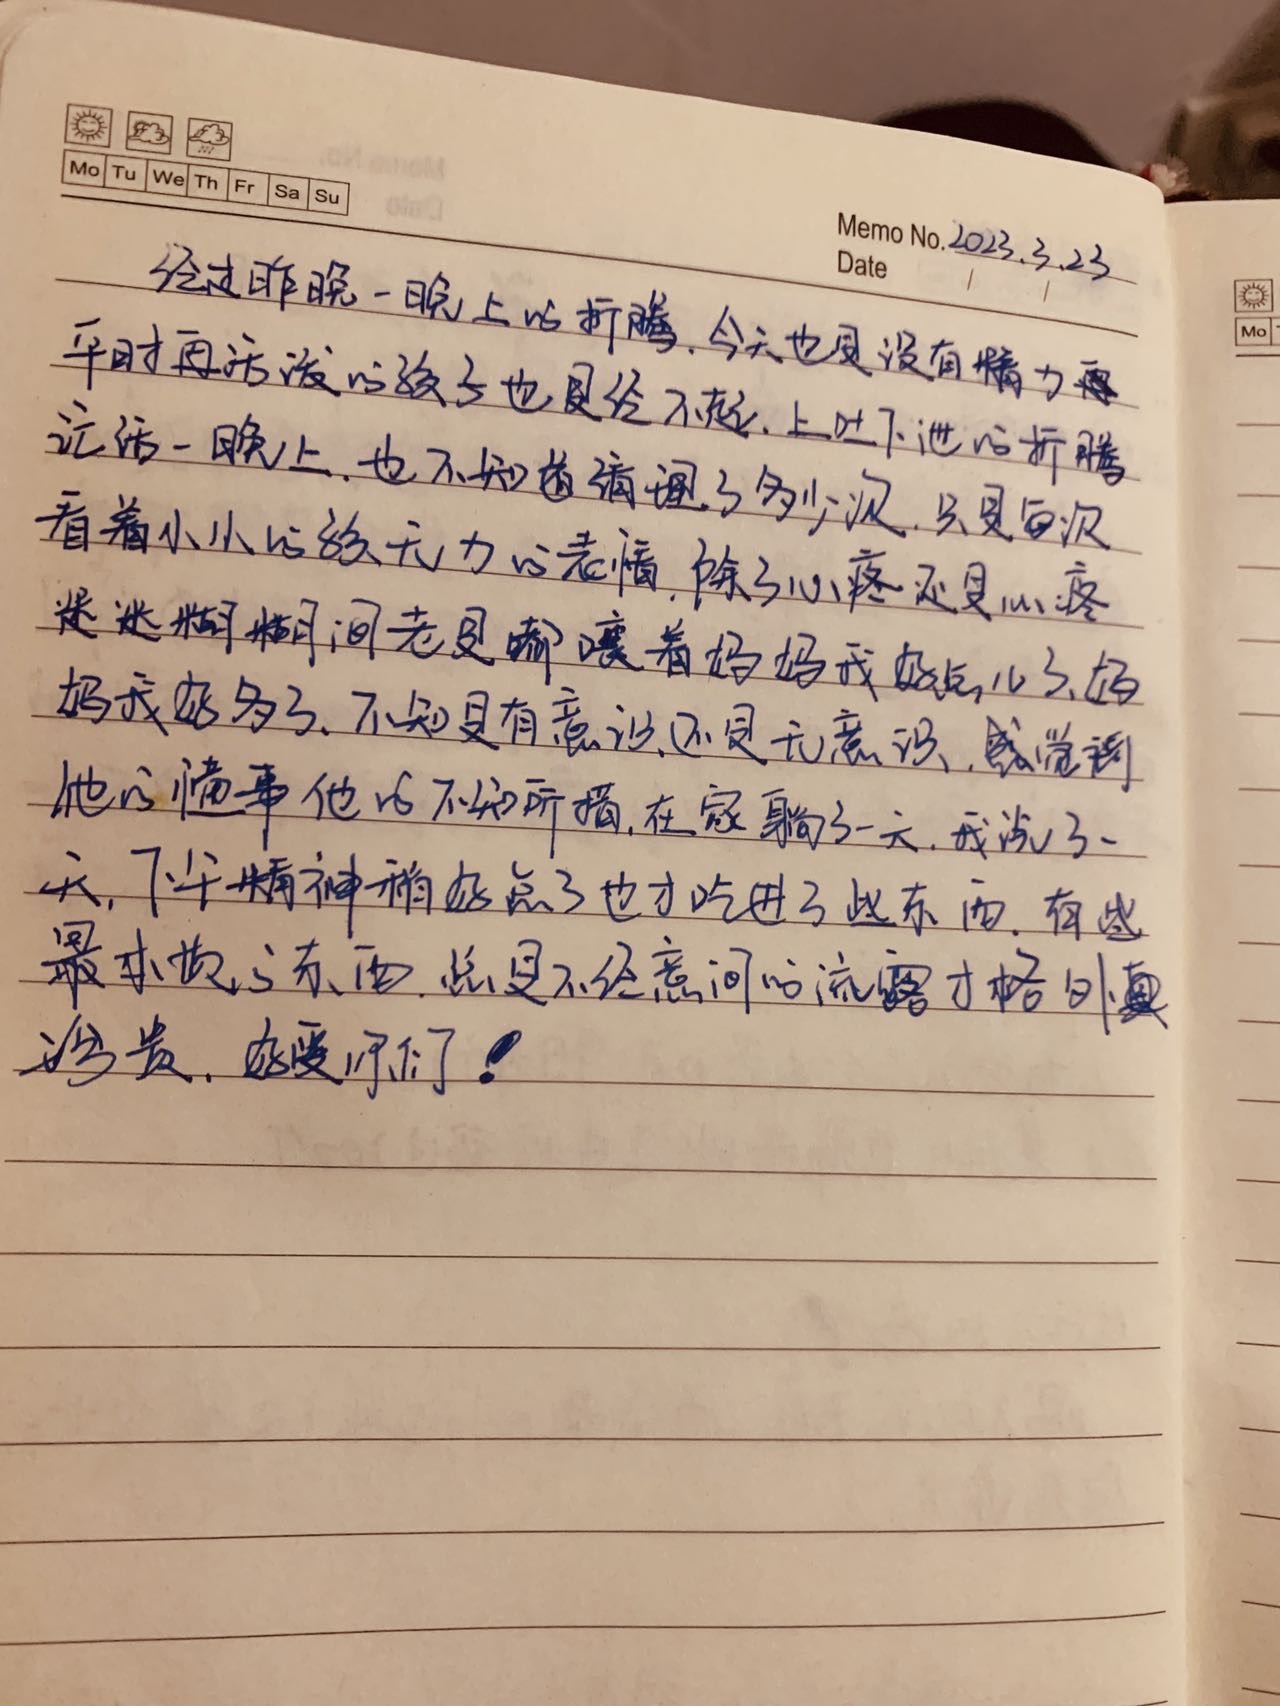 Mo Tu We Th Fr Sa Su
Memo No. 2023.3.23
Date
经过昨晚一晚上的折腾，今天也是没有精力
平时再活泼的孩子也是经不起，上吐下泄的折腾
一晚上，也不知道清理了多少次，只是每次
看着小小的孩无力的表情，除了心疼还是心疼
迷迷糊糊间老是嘟囔着妈妈我好点儿了，妈
妈我好多了，不知是有意识，还是无意识，感觉到
他的懂事他的不知所措，在家躺了一天，我洗了一
天，下午精神稍好点了也才吃进了些东西，有些
最本做的东西，总是不经意间的流露才格外
珍贵，好爱你们！
Mo